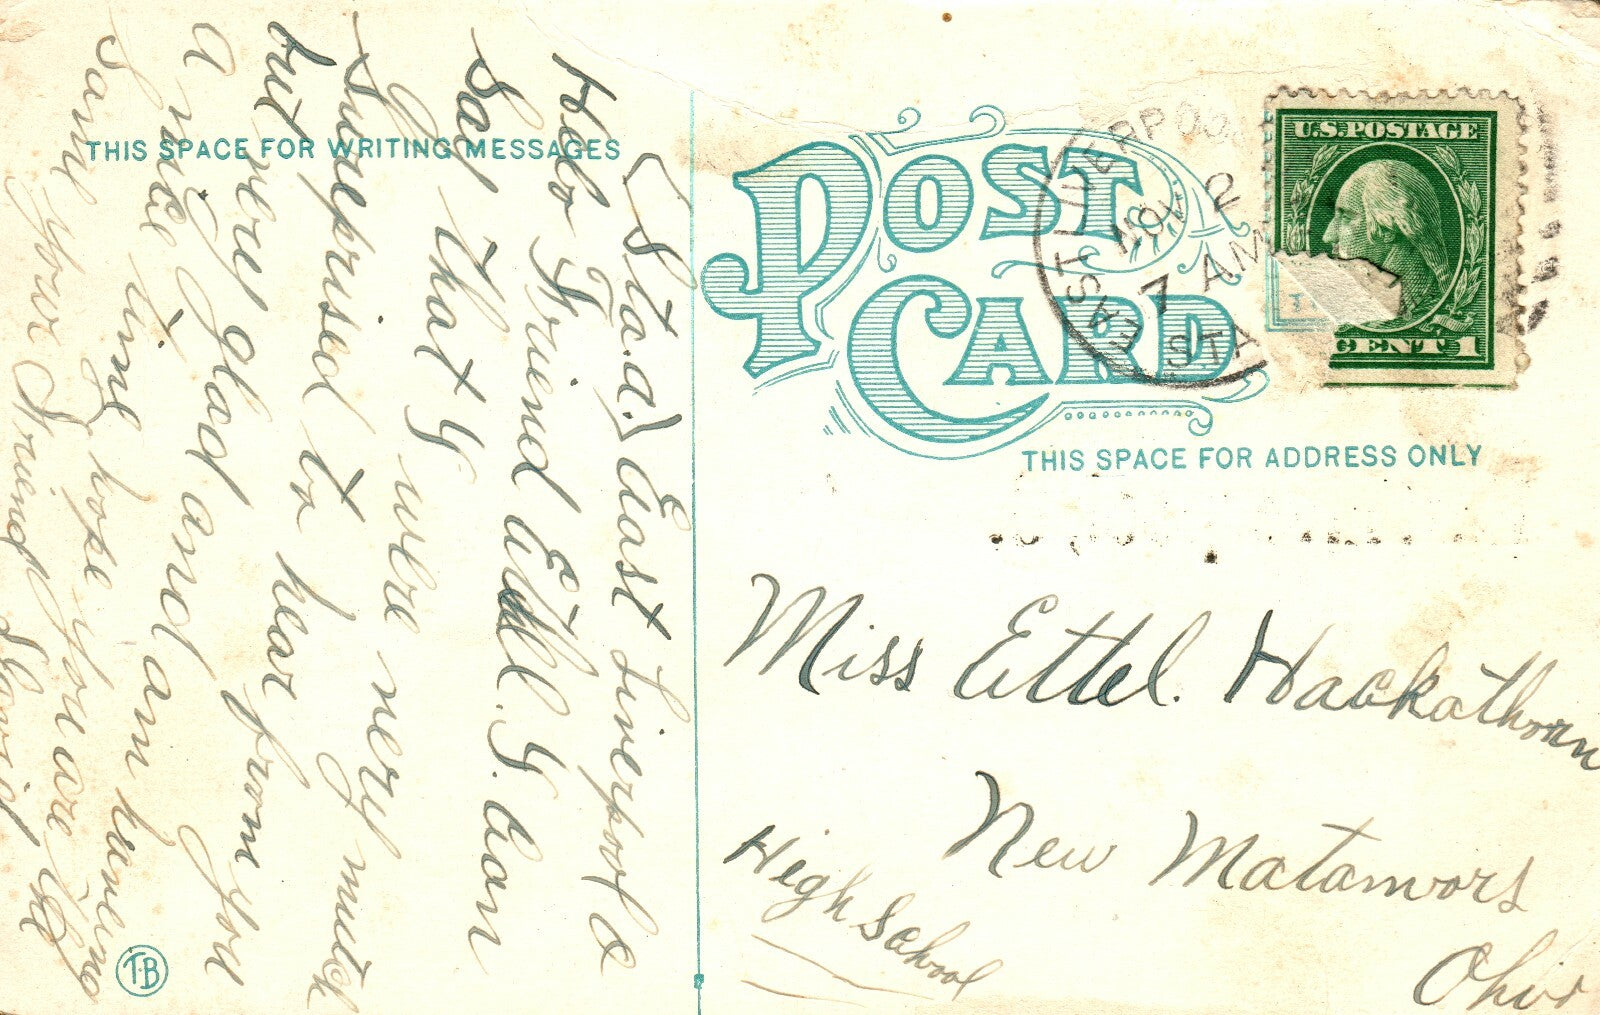 THIS SPACE FOR WRITING MESSAGES
(Sta. a.) East Liverpool O
Helo Friend Ethel. I can
Say that I
were very much
Surprised to hear from you
but very glad and
a nice time hope you are the
Same your Friend
T.B
POST
CARD
EAST LIVERPOO
NOV 2
7 AM
STA
U.S. POSTAGE
CENT 1
THIS SPACE FOR ADDRESS ONLY
Miss Ettel. Hackathorn
New Matamors
Ohio
High School